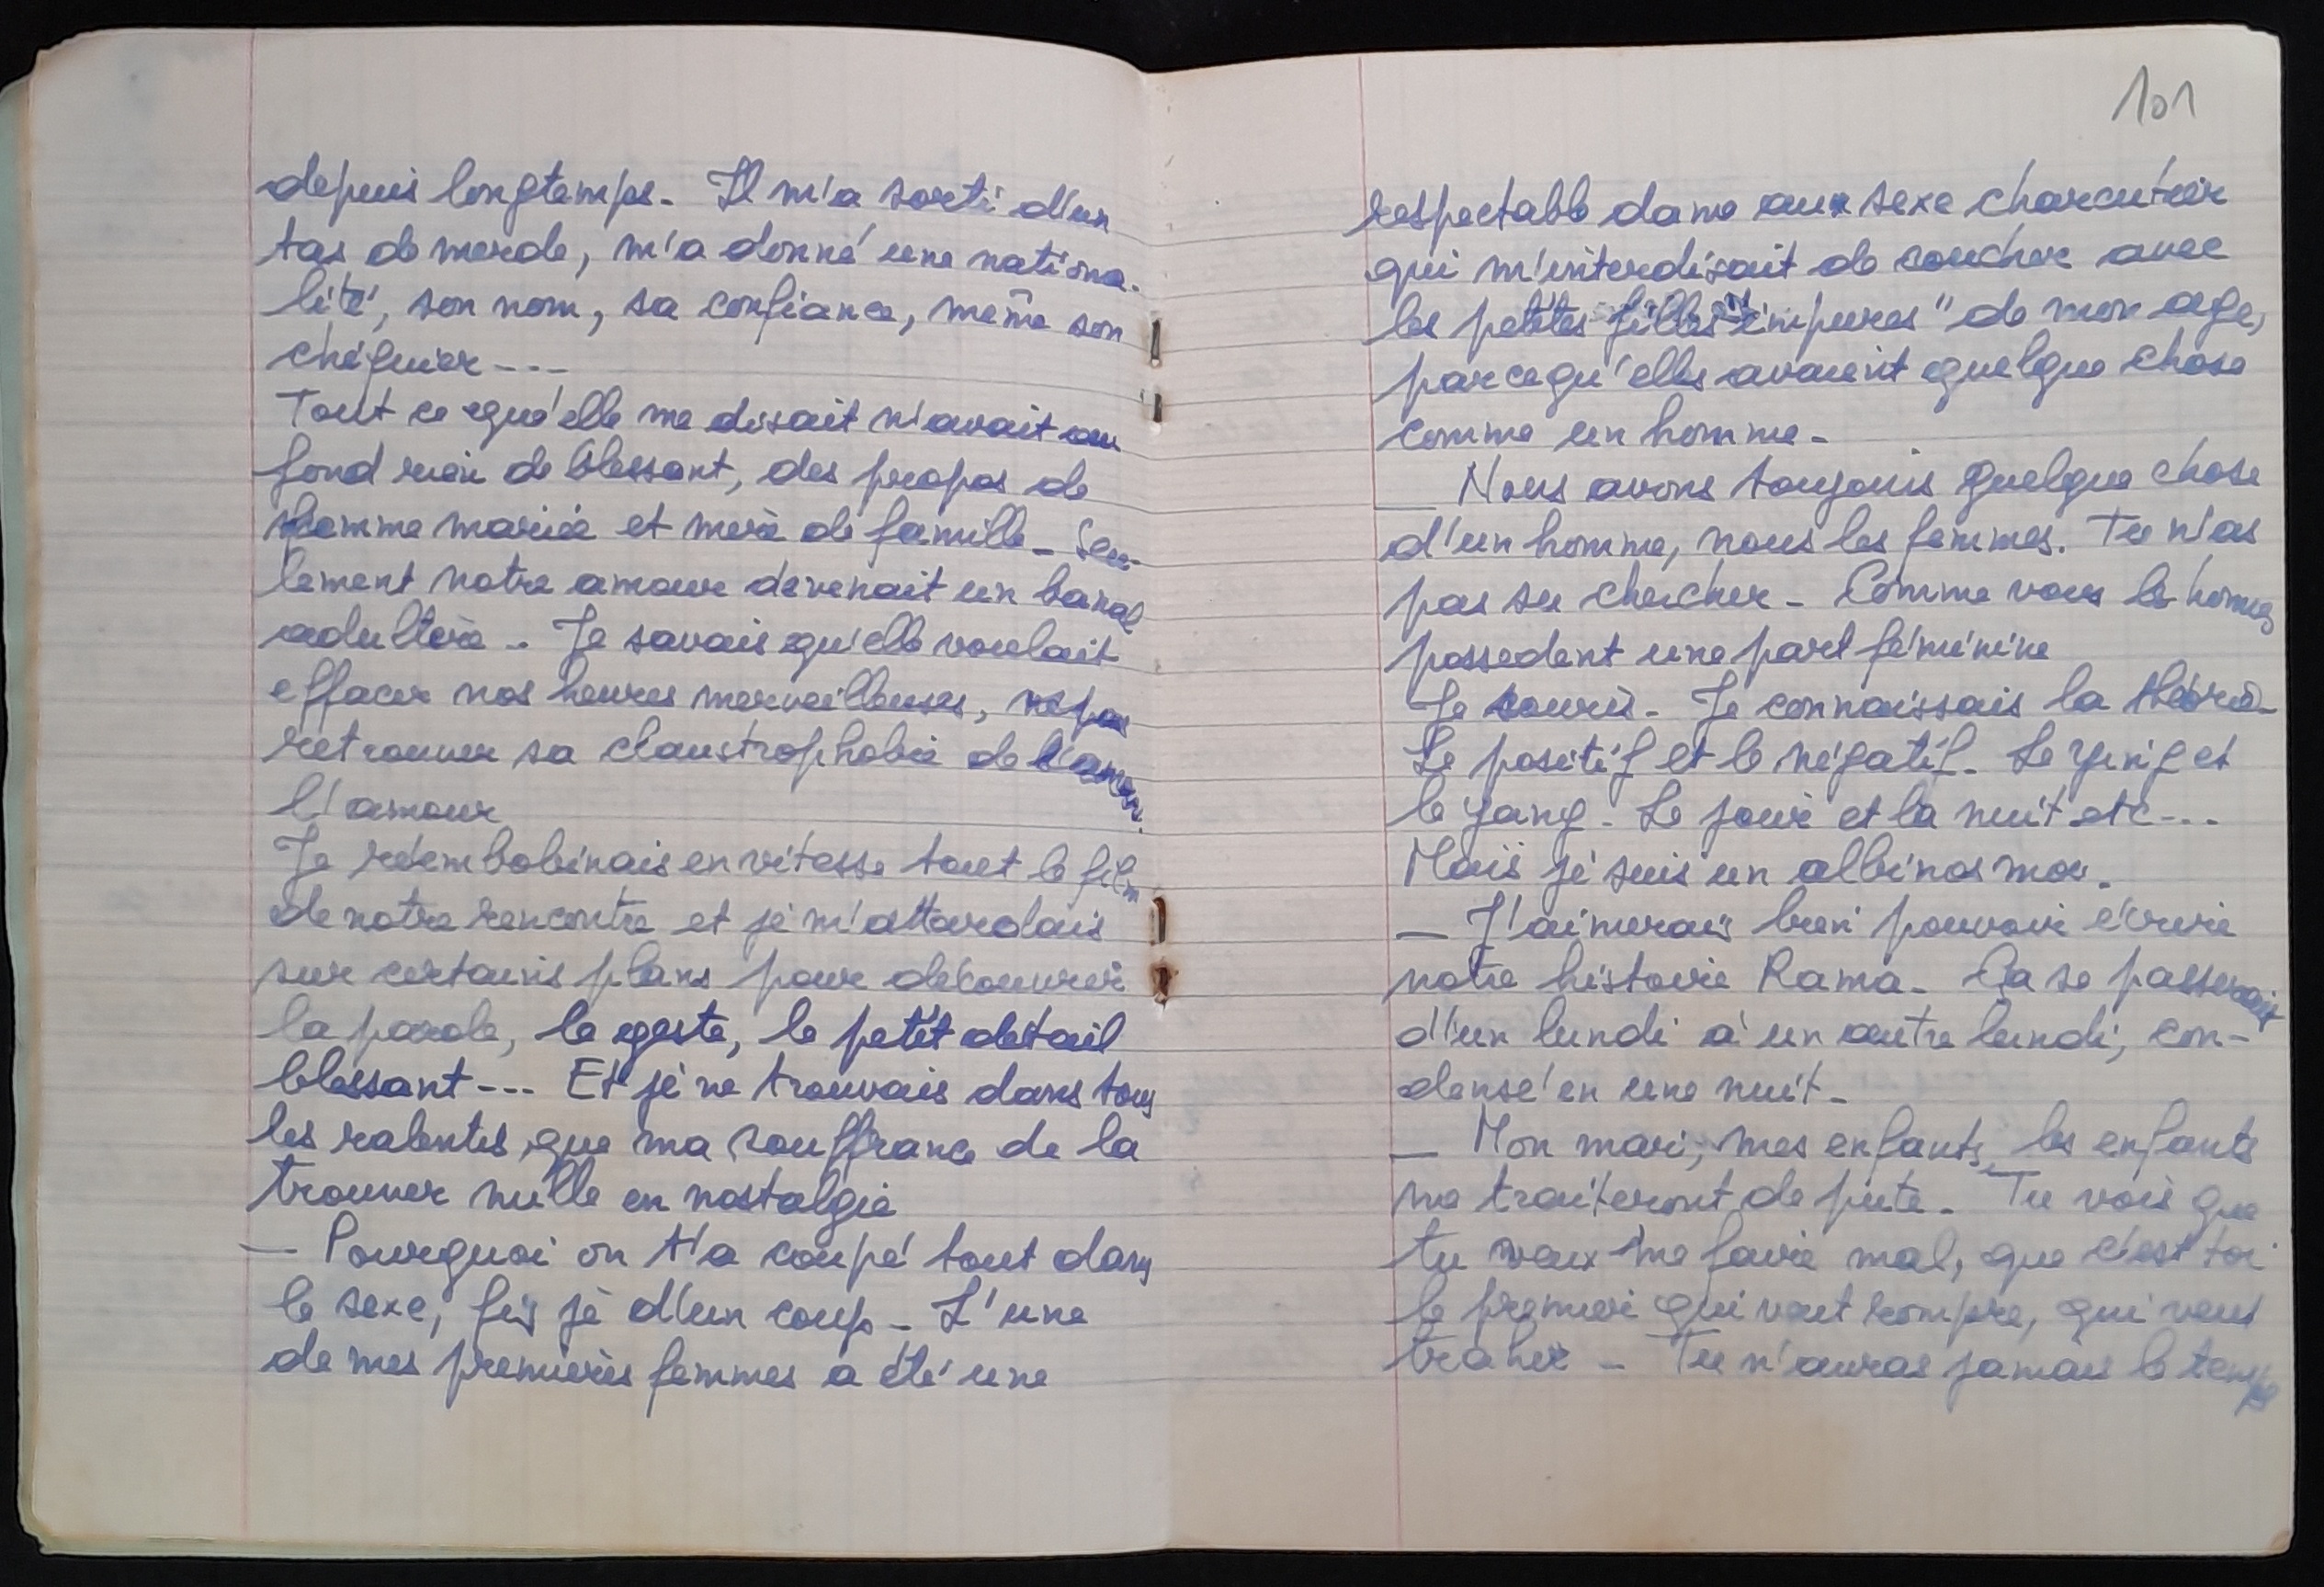 depuis longtemps. Il m'a sorti d'un
tas de merde, m'a donné une nationa-
lité, son nom, sa confiance, même son
chéquier---
Tout ce qu'elle me disait n'avait au
fond rien de blessant, des propos de
femme mariée et mère de famille. Seu-
lement notre amour devenait un banal
adultère. Je savais qu'elle voulait
effacer nos heures merveilleuses, ne pas
retrouver sa claustrophobie de l'amour.
l'amour
Je réembobinais en vitesse tout le film
de notre rencontre et je m'attardais
sur certains plans pour découvrir
la parole, le geste, le petit détail
blessant--- Et je ne trouvais dans tous
les ralentis, que ma souffrance de la
trouver nulle en nostalgie
— Pourquoi on t'a coupé tout dans
le sexe, fis je d'un coup. L'une
de mes premières femmes a été une
101
respectable dame au sexe charcuter
qui m'interdisait de coucher avec
les petites filles "impures" de mon age,
parcequ'elles avaient quelque chose
comme un homme.
— Nous avons toujours quelque chose
d'un homme, nous les femmes. Tu n'as
pas su chercher. Comme vous les hommes
possedent une part féminine
Je souris. Je connaissais la théorie.
Le positif et le négatif. Le ying et
le yang. Le jour et la nuit etc---
Mais je suis un albinos moi.
— J'aimerais bien pouvoir écrire
notre histoire Rama. Ca se passerait
d'un lundi à un autre lundi, con-
densé en une nuit.
— Mon mari, mes enfants, les enfants
me traiteront de pute. Tu vois que
tu veux me faire mal, que c'est toi
le premier qui veut rompre, qui veut
trahir. Tu n'auras jamais le temps